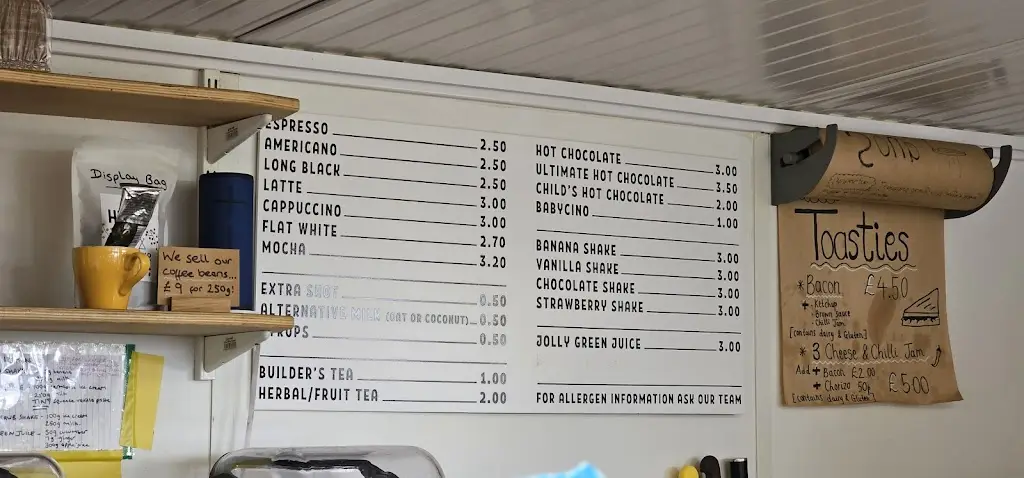 Display Bag
H
We sell our
coffee beans...
£9 for 250g!
ESPRESSO 2.50
AMERICANO 2.50
LONG BLACK 2.50
LATTE 3.00
CAPPUCCINO 3.00
FLAT WHITE 2.70
MOCHA 3.20
EXTRA SHOT 0.50
ALTERNATIVE MILK (OAT OR COCONUT) 0.50
SYRUPS 0.50
BUILDER'S TEA 1.00
HERBAL/FRUIT TEA 2.00
HOT CHOCOLATE 3.00
ULTIMATE HOT CHOCOLATE 3.50
CHILD'S HOT CHOCOLATE 2.00
BABYCINO 1.00
BANANA SHAKE 3.00
VANILLA SHAKE 3.00
CHOCOLATE SHAKE 3.00
STRAWBERRY SHAKE 3.00
JOLLY GREEN JUICE 3.00
FOR ALLERGEN INFORMATION ASK OUR TEAM
Toasties
* Bacon £4.50
+ Ketchup
- Brown Sauce
- Chilli Jam
[contains dairy & Gluten]
* 3 Cheese & Chilli Jam
Add + Bacon £2.00
+ Chorizo 50p £5.00
[contains dairy & Gluten]
SHAKE - 100g ice cream
250g milk
JUICE - 50g cucumber